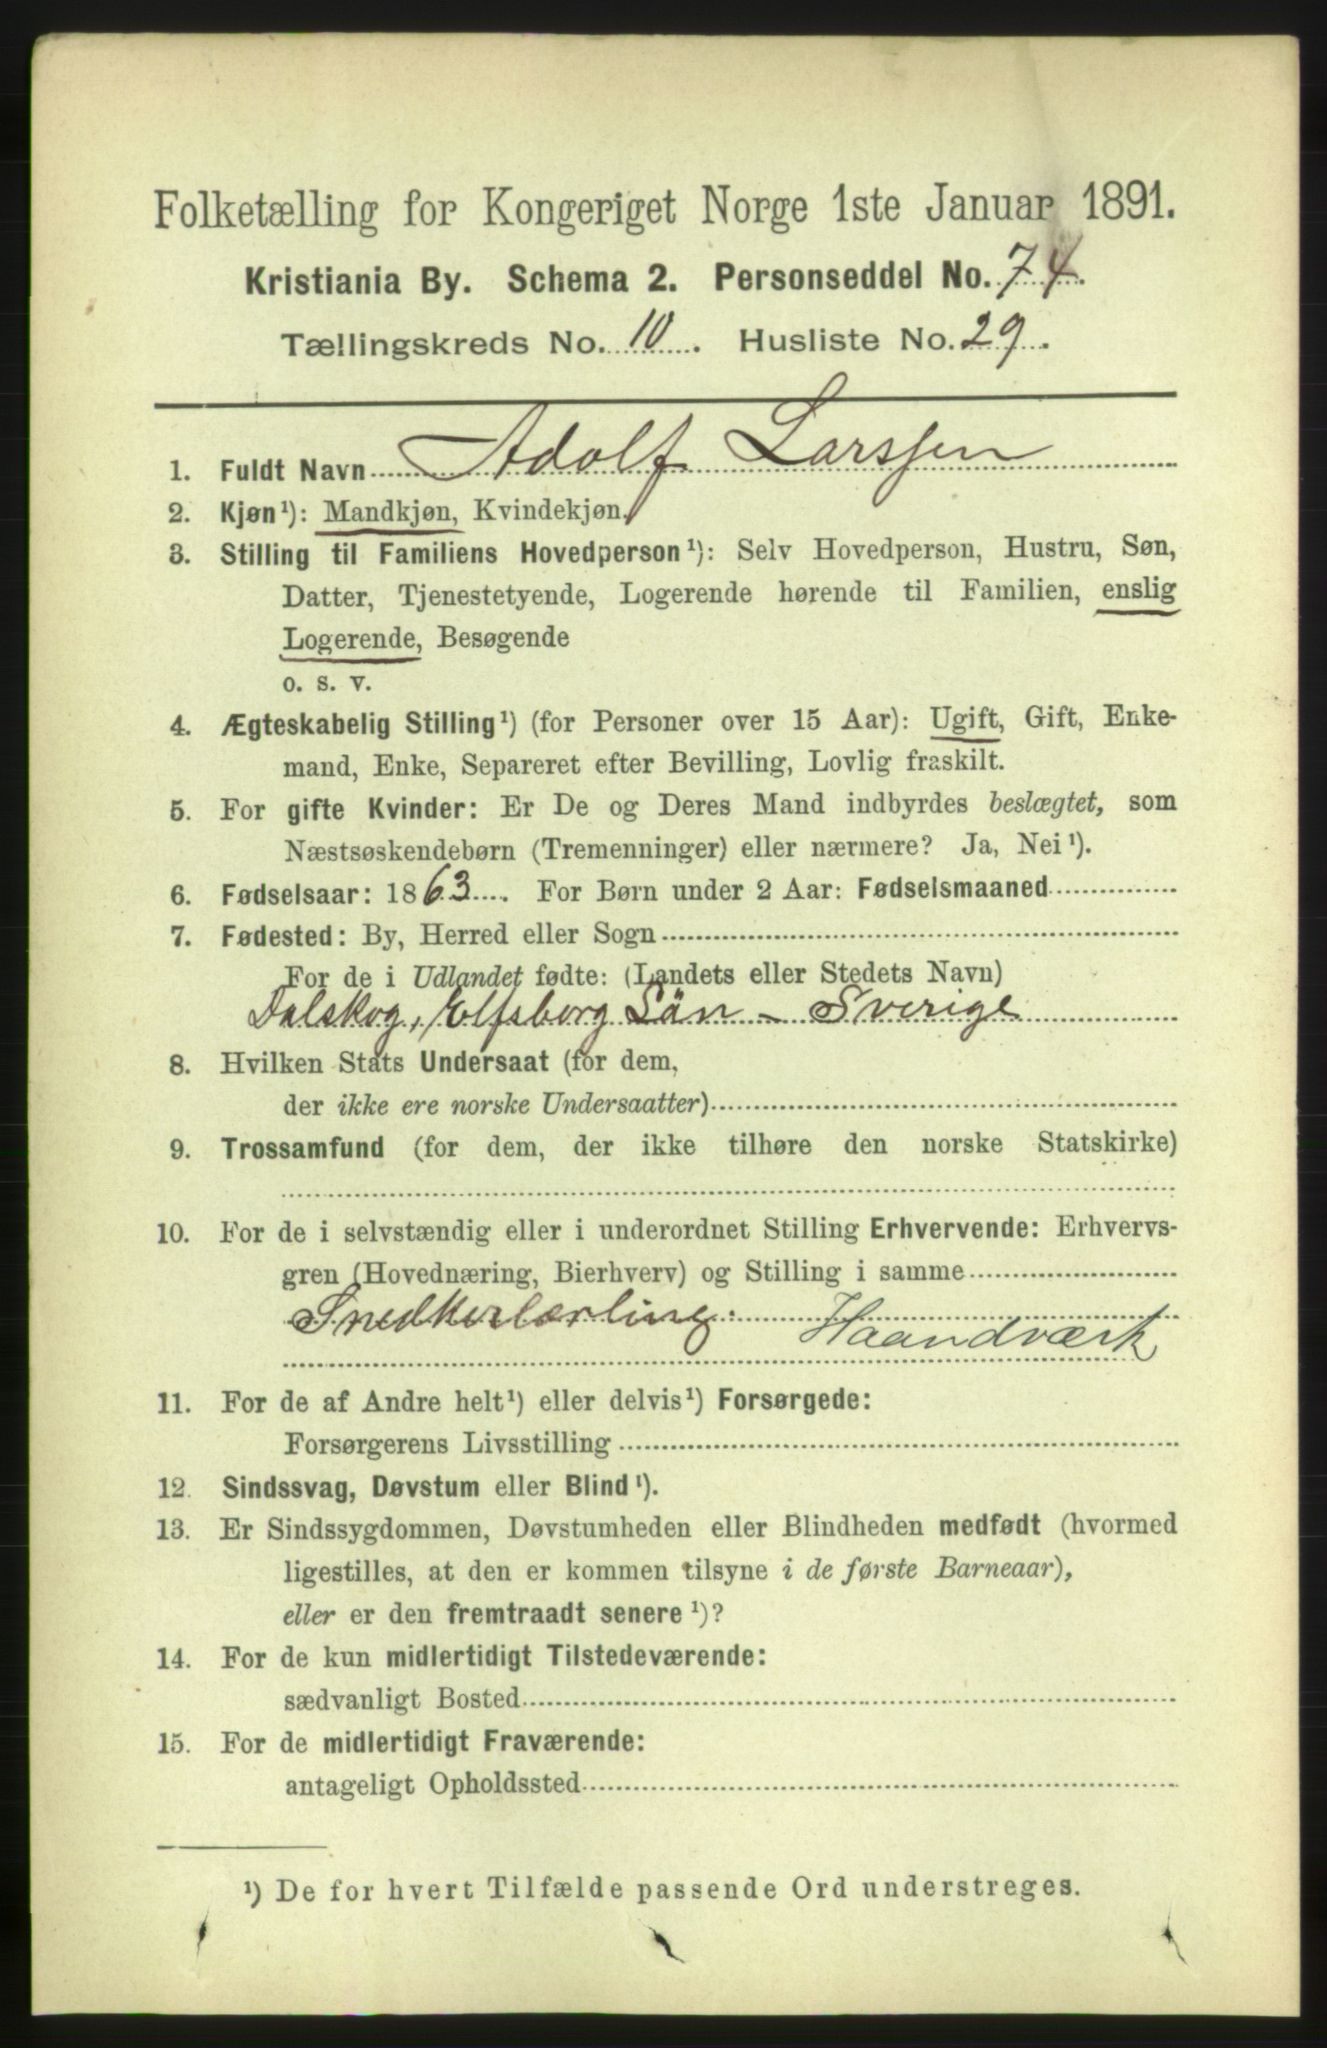 Folketælling for Kongeriget Norge 1ste Januar 1891.
Kristiania By. Schema 2. Personseddel No. 74.
Tællingskreds No. 10. Husliste No. 29.
1. Fuldt Navn Adolf Larssen
2. Kjøn¹): Mandkjøn, Kvindekjøn.
3. Stilling til Familiens Hovedperson¹): Selv Hovedperson, Hustru, Søn,
Datter, Tjenestetyende, Logerende hørende til Familien, enslig
Logerende, Besøgende
o. s. v.
4. Ægteskabelig Stilling¹) (for Personer over 15 Aar): Ugift, Gift, Enke-
mand, Enke, Separeret efter Bevilling, Lovlig fraskilt.
5. For gifte Kvinder: Er De og Deres Mand indbyrdes beslægtet, som
Næstsøskendebørn (Tremenninger) eller nærmere? Ja, Nei¹).
6. Fødselsaar: 1863. For Børn under 2 Aar: Fødselsmaaned
7. Fødested: By, Herred eller Sogn
For de i Udlandet fødte: (Landets eller Stedets Navn)
Dalskog, Elfsborg Län - Sverige
8. Hvilken Stats Undersaat (for dem,
der ikke ere norske Undersaatter)
9. Trossamfund (for dem, der ikke tilhøre den norske Statskirke)
10. For de i selvstændig eller i underordnet Stilling Erhvervende: Erhvervs-
gren (Hovednæring, Bierhverv) og Stilling i samme
Snedkerlærling: Haandværk
11. For de af Andre helt¹) eller delvis¹) Forsørgede:
Forsørgerens Livsstilling
12. Sindssvag, Døvstum eller Blind¹).
13. Er Sindssygdommen, Døvstumheden eller Blindheden medfødt (hvormed
ligestilles, at den er kommen tilsyne i de første Barneaar),
eller er den fremtraadt senere¹)?
14. For de kun midlertidigt Tilstedeværende:
sædvanligt Bosted
15. For de midlertidigt Fraværende:
antageligt Opholdssted
¹) De for hvert Tilfælde passende Ord understreges.